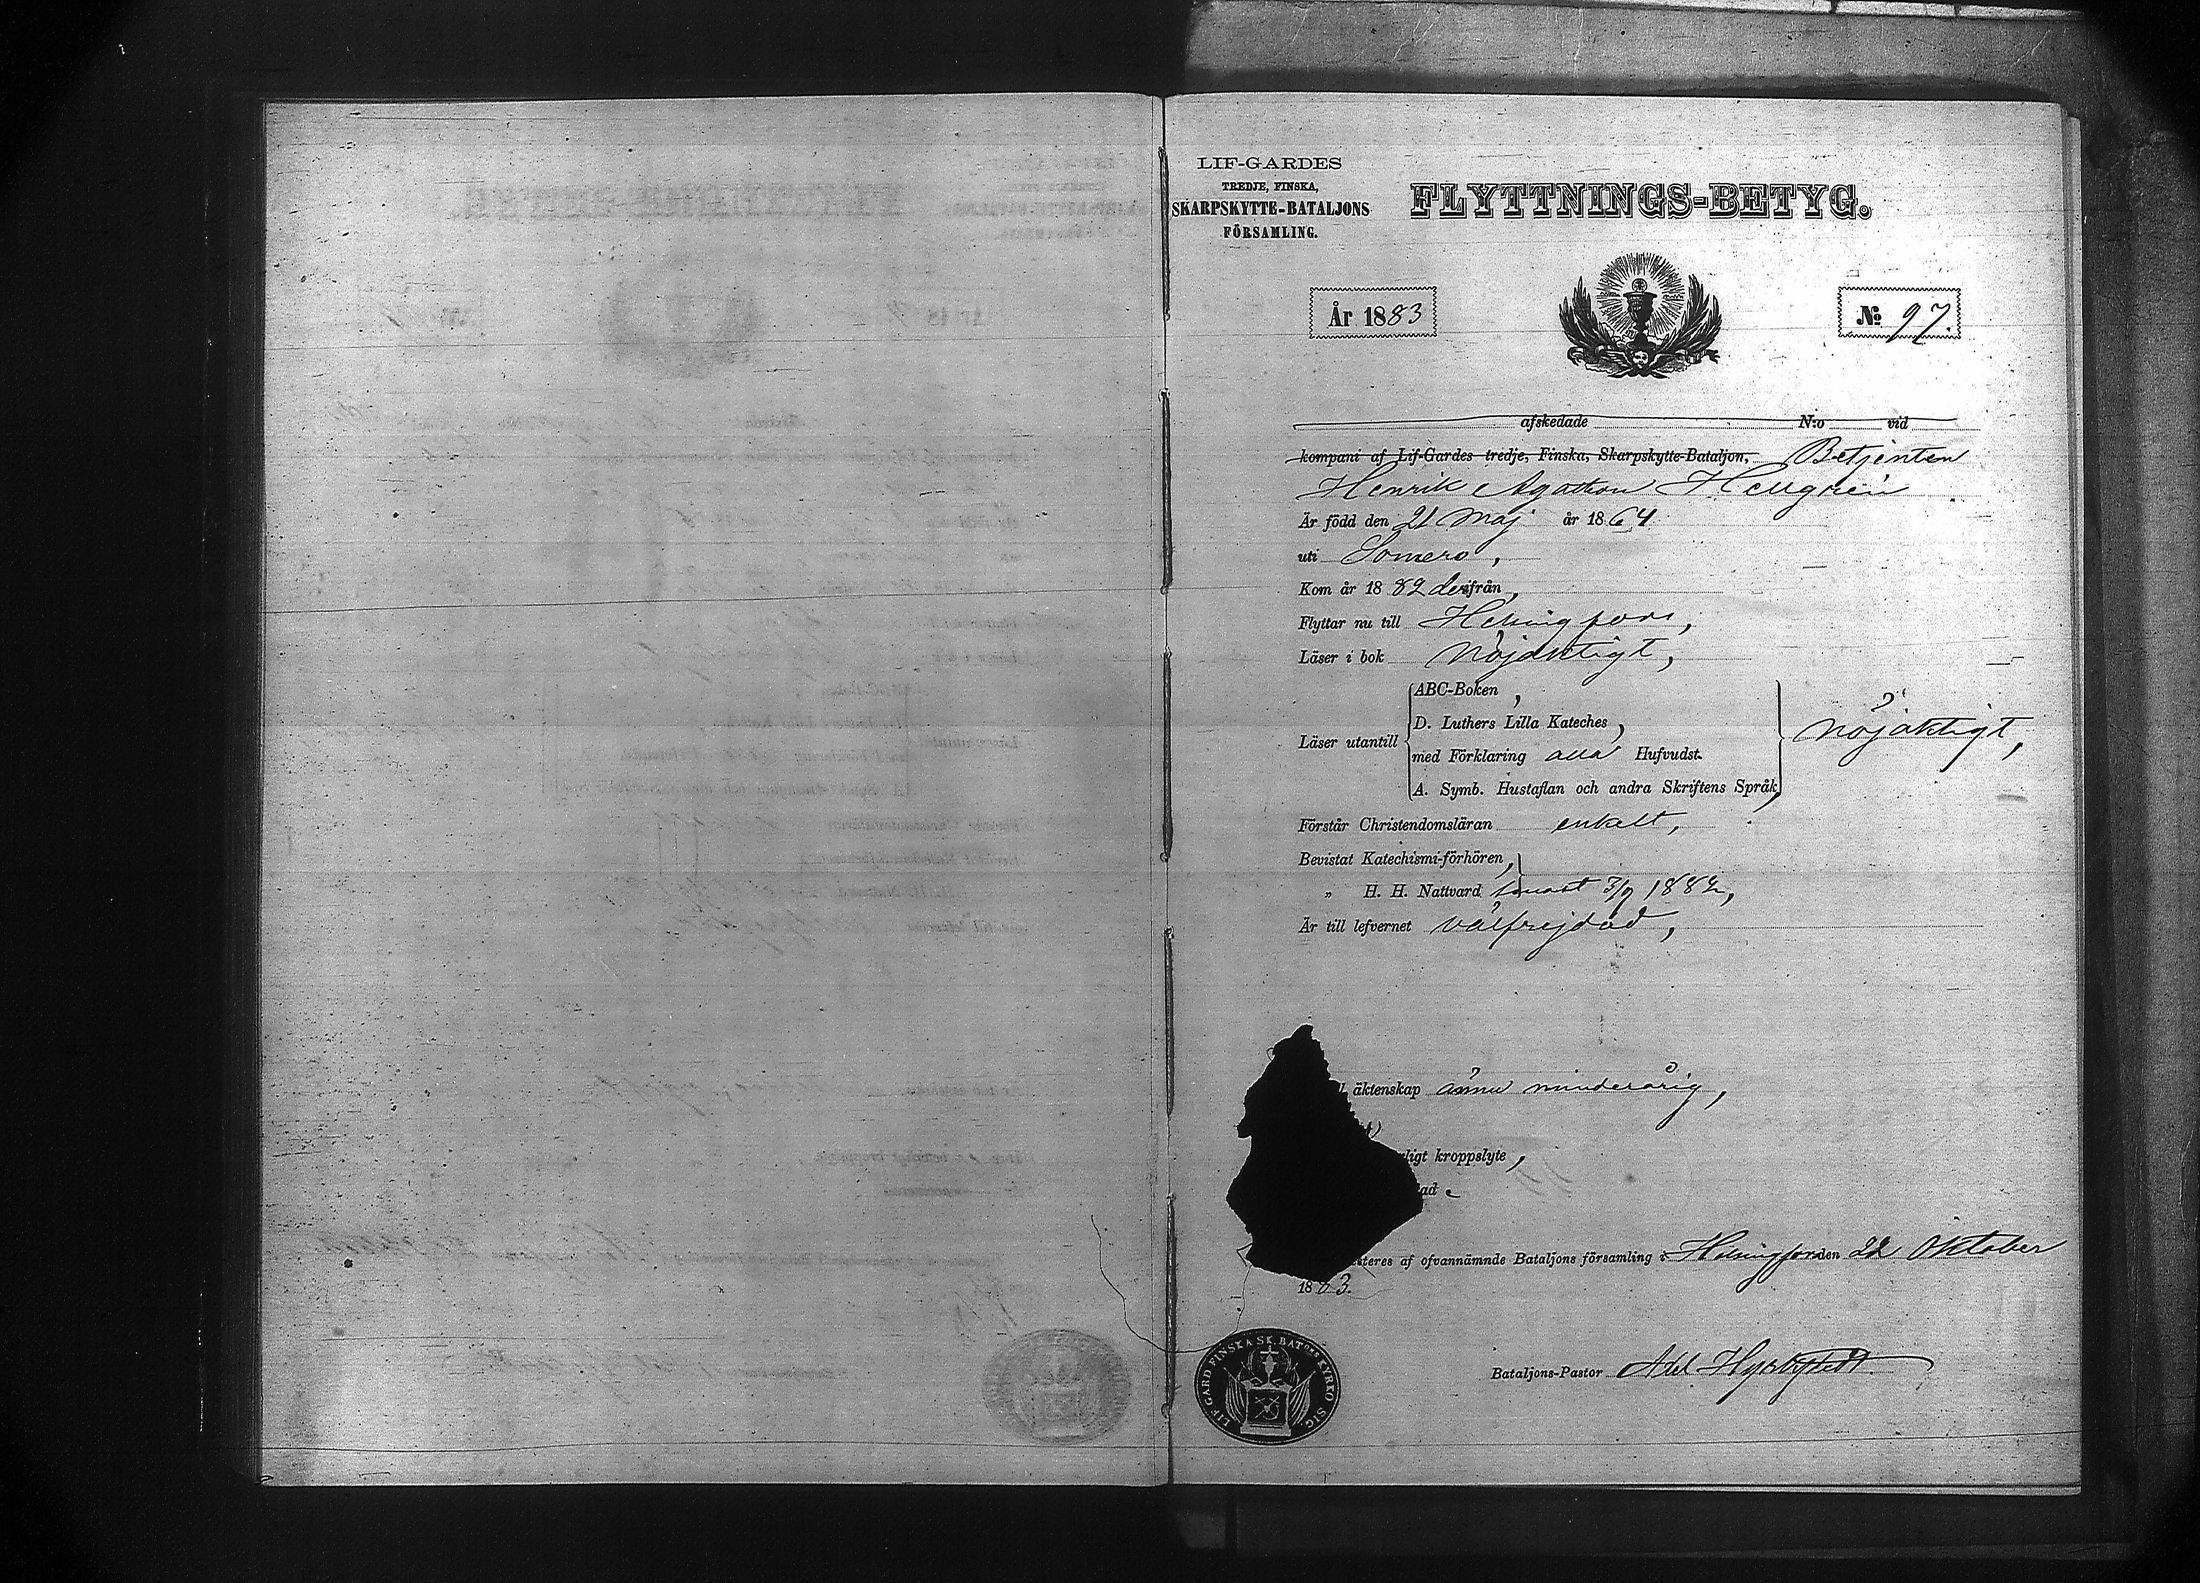 LIF-GARDES
TREDJE, FINSKA,
SKARPSKYTTE-BATALJONS
FÖRSAMLING.
FLYTTNINGS-BETYG.
År 1883
№ 97.
afskedade N:o vid
kompani af Lif-Gardes tredje, Finska, Skarpskytte-Bataljon, Betjenten
Henrik Agathon Hellgrén
Är född den 21 Maj år 1864
uti Somero,
Kom år 1882 derifrån,
Flyttar nu till Helsingfors,
Läser i bok nöjaktigt,
Läser utantill
ABC-Boken,
D. Luthers Lilla Kateches,
med Förklaring alla Hufvudst.
A. Symb. Hustaflan och andra Skriftens Språk,
nöjaktigt,
Förstår Christendomsläran enkelt,
Bevistat Katechismi-förhören,
„ H. H. Nattvard senast 3/9 1882,
Är till lefvernet välfrejdad,
äktenskap ännu minderårig,
ligt kroppslyte,
ad.
teres af ofvannämnde Bataljons församling i Helsingfors den 22 Oktober
1883.
LIF GARD FINSKA SK. BATONS KYRKO SIG.
Bataljons-Pastor Adel